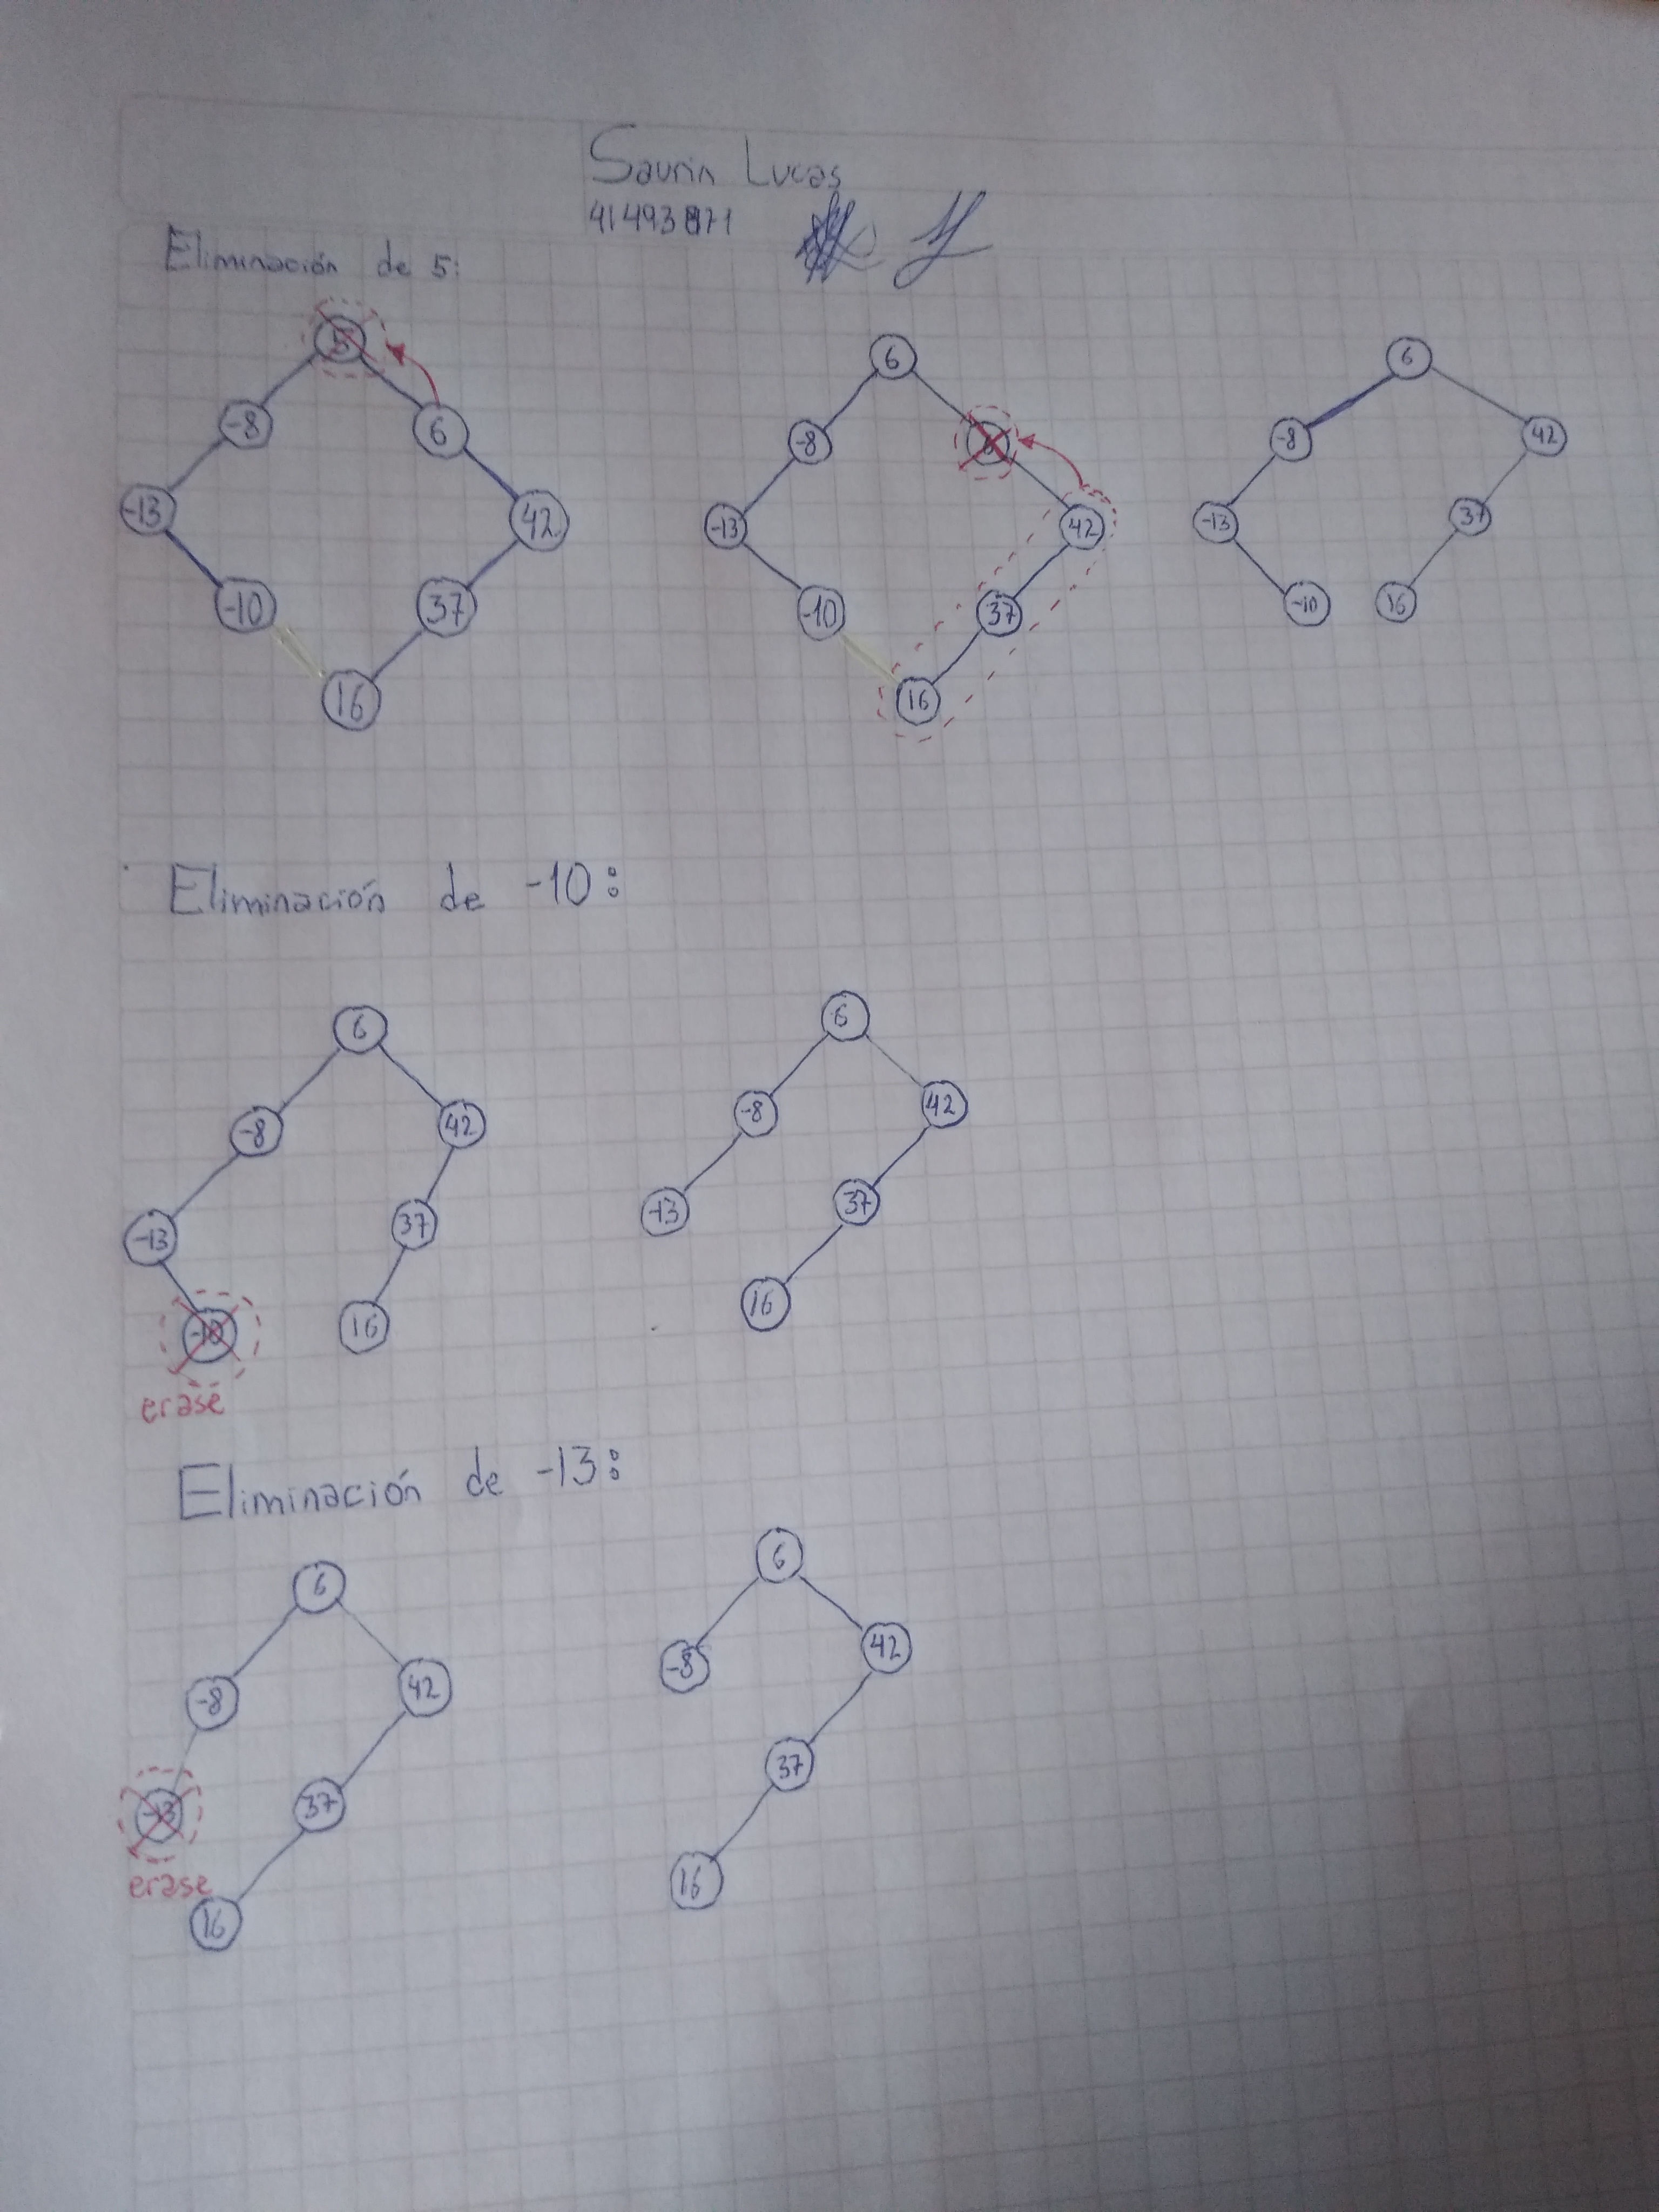 Saurin Lucas
41493871
Eliminación de 5:
5
-8 6
-13 42
-10 37
16
6
-8
-13 42
-10 37
16
6
-8 42
-13 37
-10 16
Eliminación de -10:
6
-8 42
-13 37
-10 16
erase
6
-8 42
-13 37
16
Eliminación de -13:
6
-8 42
-13 37
erase
16
6
-8 42
37
16